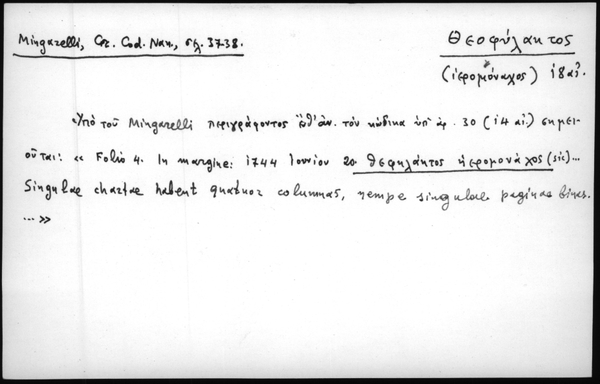 Mingarelli, Gr. Cod. Nan., σελ. 37-38.
Θεοφύλακτος
(ἱερομόναχος) 18 αἰ.
Ὑπὸ τοῦ Mingarelli περιγράφοντος τὸν κώδικα ὑπ' ἀρ. 30 (14 αἰ.) σημει-
οῦται: « Folio 4. In margine: 1744 Ιουνίου 20. θεφηλάκτος ηερομονάχος (sic)...
Singulae chartae habent quatuor columnas, nempe singulae paginae binas.
... »